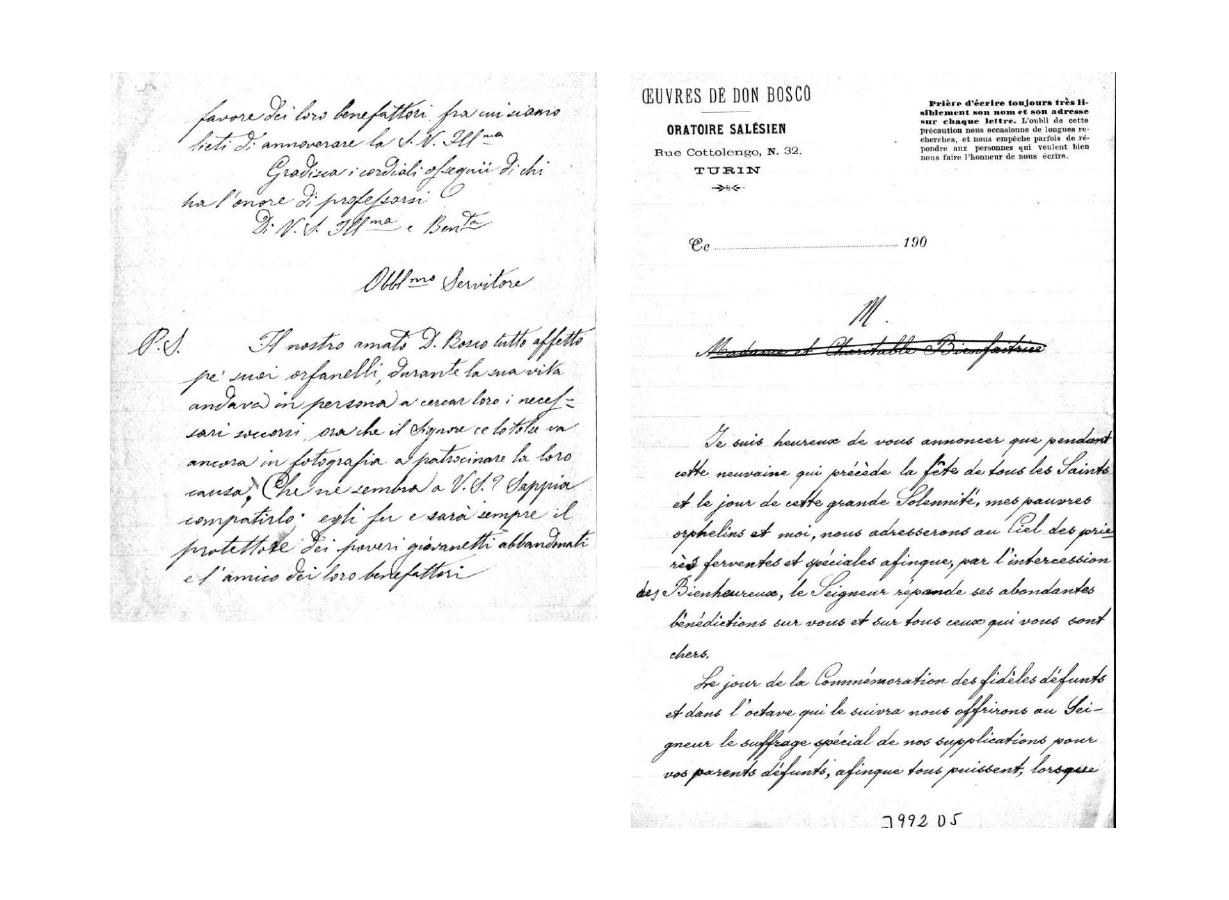 favore dei loro benefattori, fra cui siamo
lieti di annoverare la S. V. Ill.ma
Gradisca i cordiali ossequii di chi
ha l'onore di professarsi
Di V. S. Ill.ma e Ben.ta
Obbl.mo Servitore
P. S. Il nostro amato D. Bosco tutto affetto
pe' suoi orfanelli, durante la sua vita
andava in persona a cercar loro i neces-
sari soccorsi, ora che il Signore ce lo tolse va
ancora in fotografia a patrocinare la loro
causa, Che ne sembra a V. S.? Sappia
compatirlo; egli fu e sarà sempre il
protettore dei poveri giovanetti abbandonati
e l'amico dei loro benefattori
ŒUVRES DE DON BOSCO
ORATOIRE SALÉSIEN
Rue Cottolengo, N. 32.
TURIN
Prière d'écrire toujours très li-
siblement son nom et son adresse
sur chaque lettre. L'oubli de cette
précaution nous occasionne de longues re-
cherches, et nous empêche parfois de ré-
pondre aux personnes qui veulent bien
nous faire l'honneur de nous écrire.
Ce 190
M.
Madame et Charitable Bienfactrice
Je suis heureux de vous annoncer que pendant
cette neuvaine qui précède la fête de tous les Saints
et le jour de cette grande Solennité, mes pauvres
orphelins et moi, nous adresserons au Ciel des priè
res ferventes et spéciales afinque, par l'intercession
des Bienheureux, le Seigneur répande ses abondantes
bénédictions sur vous et sur tous ceux qui vous sont
chers.
Le jour de la Commémoration des fidèles défunts
et dans l'octave qui le suivra nous offrirons au Sei-
gneur le suffrage spécial de nos supplications pour
vos parents défunts, afinque tous puissent, lorsque
3992 D5